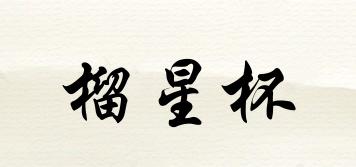 榴星杯